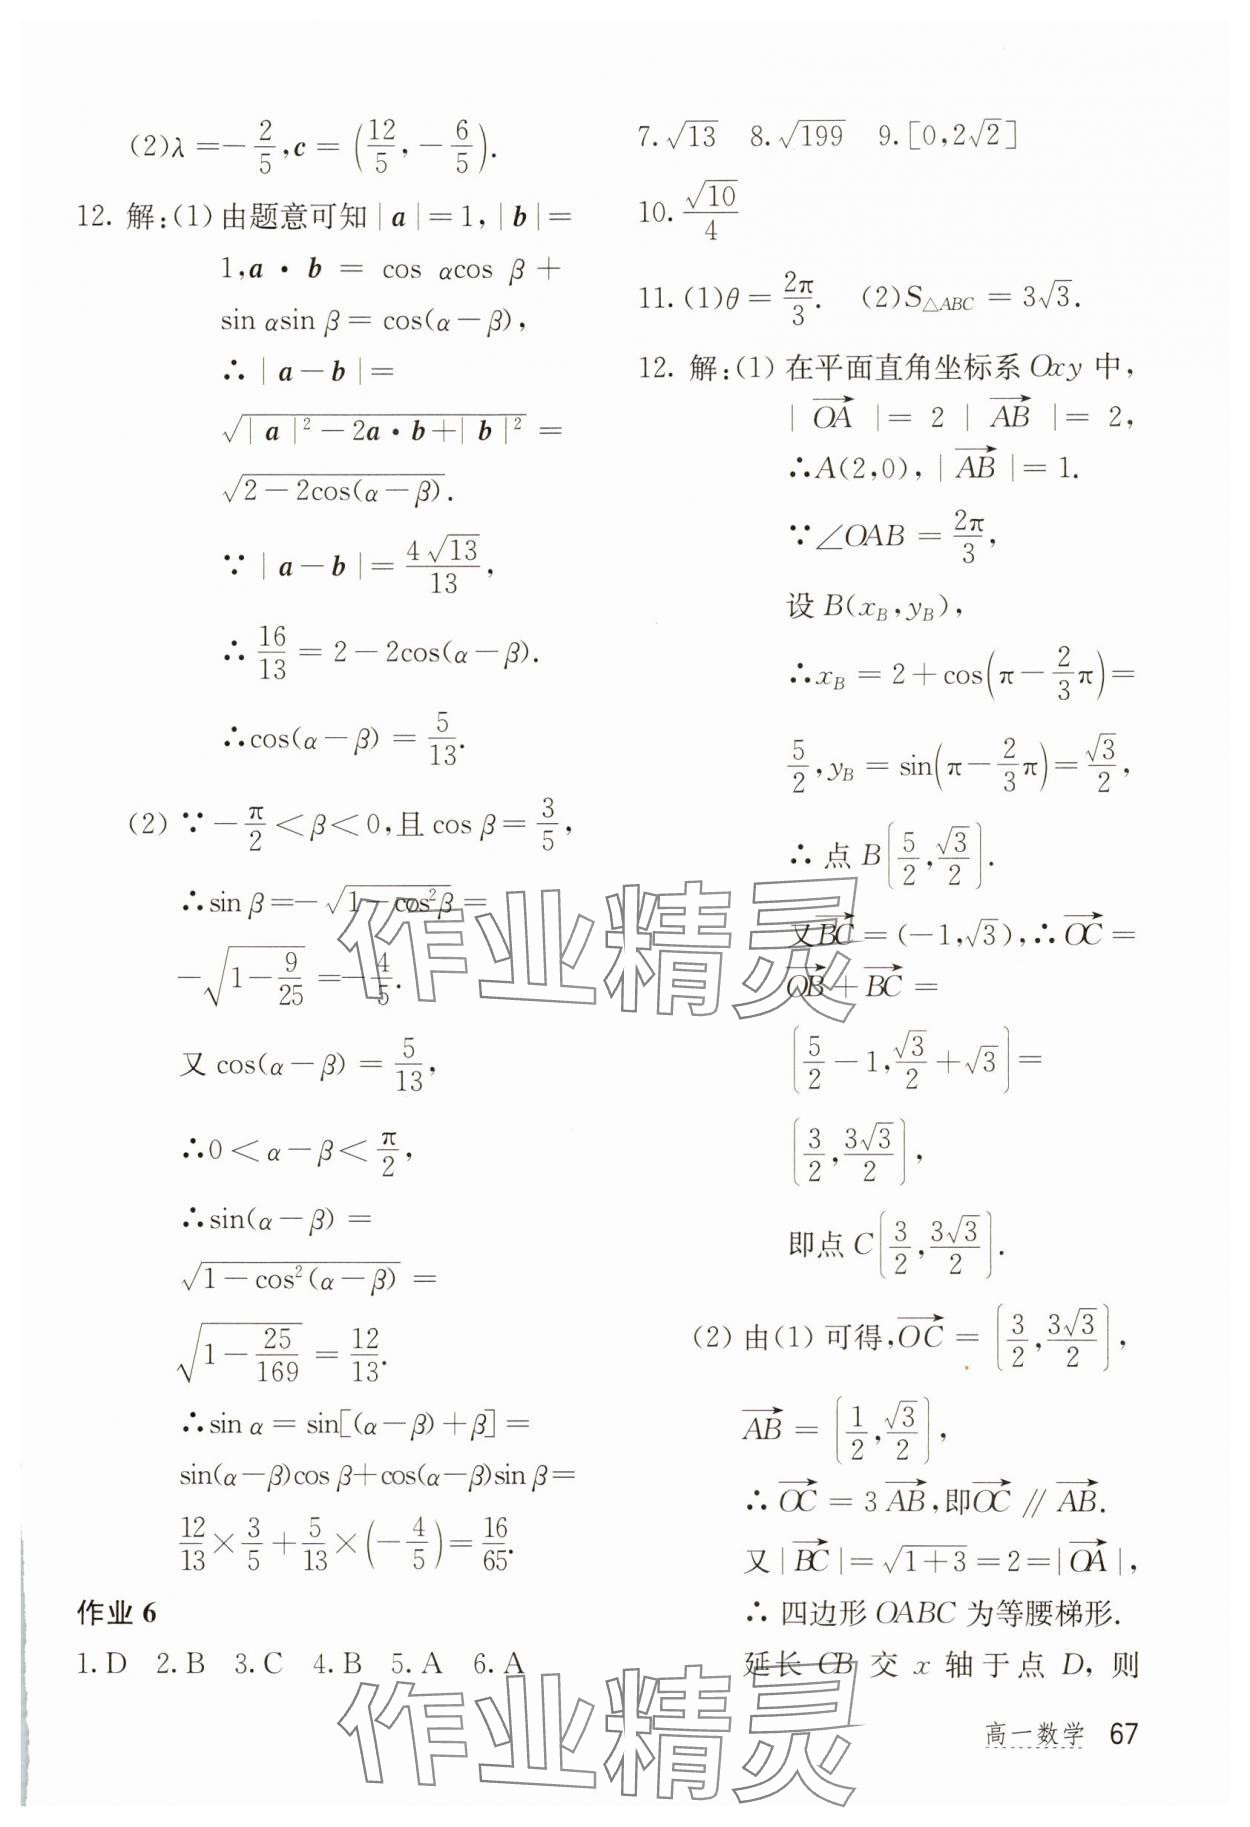 (2)λ=-2/5,c=(12/5,-6/5).
12. 解:(1)由题意可知|a|=1,|b|=
1,a·b = cos αcos β+
sin αsin β=cos(α-β),
∴|a-b|=
√(|a|²-2a·b+|b|²) =
√(2-2cos(α-β)).
∵|a-b|=4√13/13,
∴16/13=2-2cos(α-β).
∴cos(α-β)=5/13.
(2)∵-π/2<β<0,且cos β=3/5,
∴sin β=-√(1-cos²β)=
-√(1-9/25)=-4/5.
又cos(α-β)=5/13,
∴0<α-β<π/2,
∴sin(α-β)=
√(1-cos²(α-β)) =
√(1-25/169)=12/13.
∴sin α=sin[(α-β)+β]=
sin(α-β)cos β+cos(α-β)sin β=
12/13×3/5+5/13×(-4/5)=16/65.
作业6
1.D 2.B 3.C 4.B 5.A 6.A
7.√13 8.√199 9.[0,2√2]
10.√10/4
11.(1)θ=2π/3. (2)S△ABC=3√3.
12. 解:(1)在平面直角坐标系Oxy中,
|OA|=2|AB|=2,
∴A(2,0),|AB|=1.
∵∠OAB=2π/3,
设B(xB,yB),
∴xB=2+cos(π-2/3π)=
5/2,yB=sin(π-2/3π)=√3/2,
∴点B(5/2,√3/2).
又BC=(-1,√3),∴OC=
OB+BC=
(5/2-1,√3/2+√3)=
(3/2,3√3/2),
即点C(3/2,3√3/2).
(2)由(1)可得,OC=(3/2,3√3/2),
AB=(1/2,√3/2),
∴OC=3AB,即OC∥AB.
又|BC|=√(1+3)=2=|OA|,
∴四边形OABC为等腰梯形.
延长CB交x轴于点D,则
高一数学 67
作业精灵
作业精灵